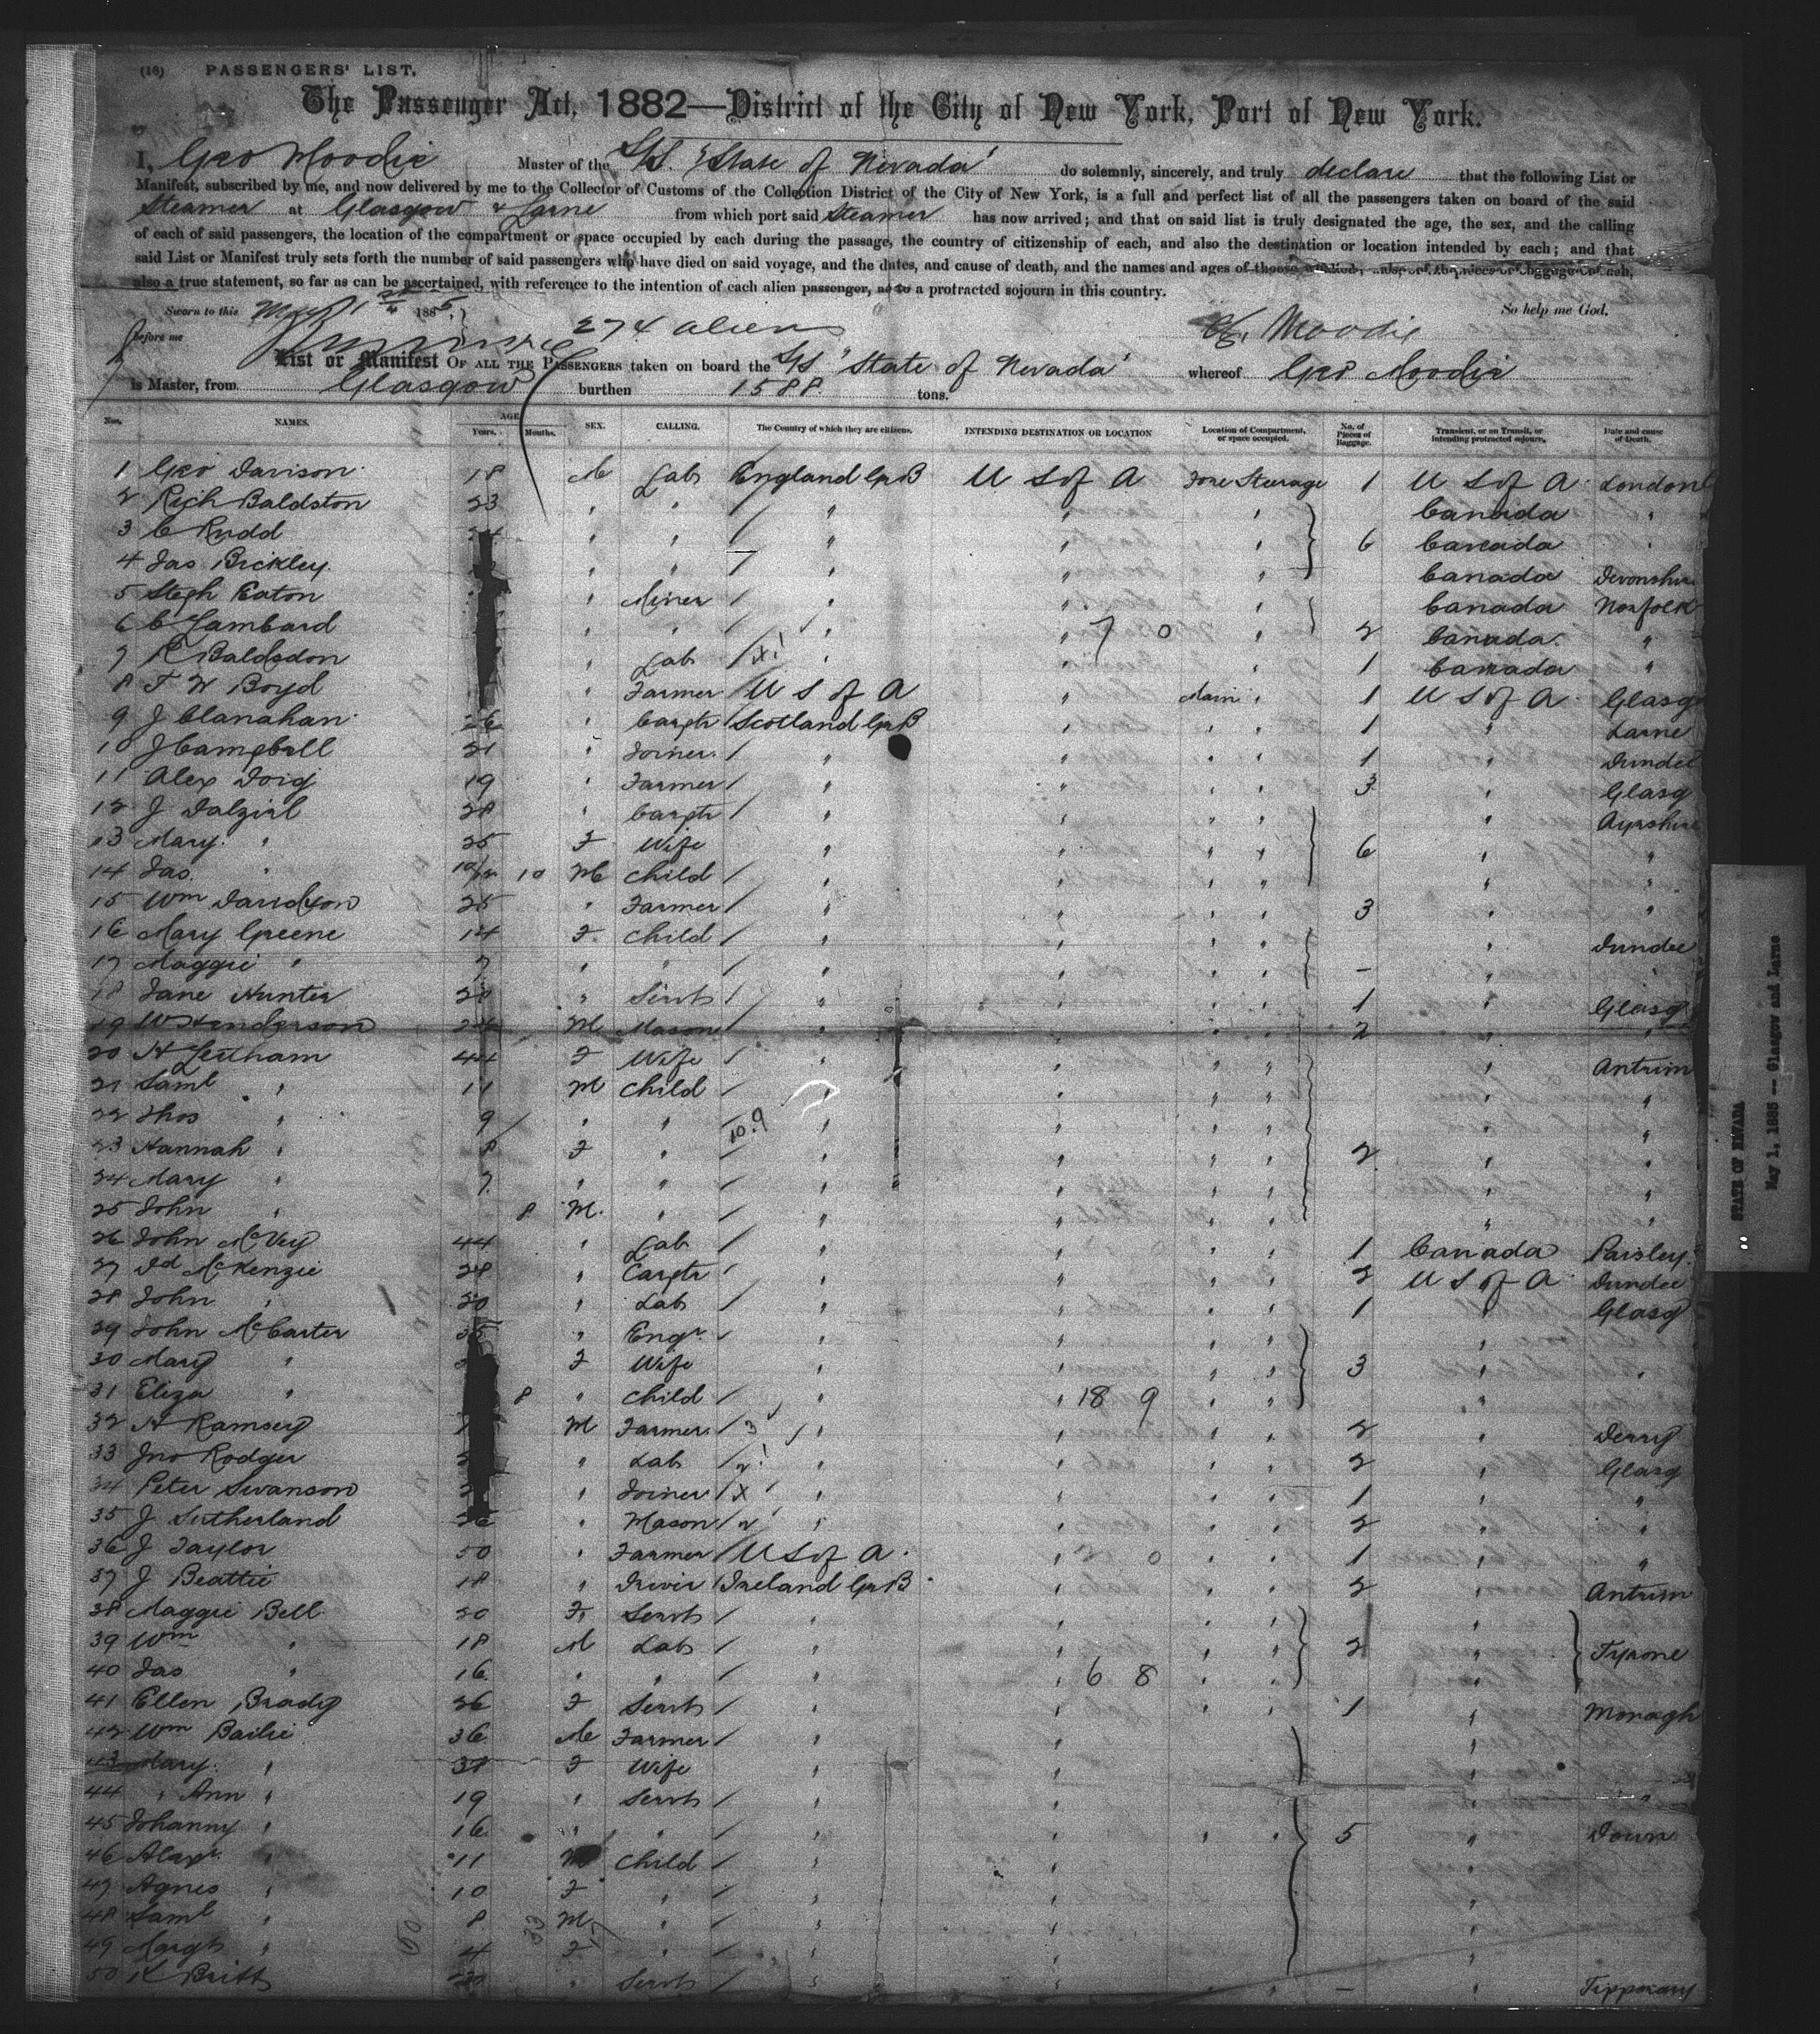 (16) PASSENGERS' LIST.
The Passenger Act, 1882—District of the City of New York, Port of New York.
I, Geo Moodie Master of the S/S. "State of Nevada" do solemnly, sincerely, and truly declare that the following List or
Manifest, subscribed by me, and now delivered by me to the Collector of Customs of the Collection District of the City of New York, is a full and perfect list of all the passengers taken on board of the said
Steamer at Glasgow & Larne from which port said Steamer has now arrived; and that on said list is truly designated the age, the sex, and the calling
of each of said passengers, the location of the compartment or space occupied by each during the passage, the country of citizenship of each, and also the destination or location intended by each; and that
said List or Manifest truly sets forth the number of said passengers who have died on said voyage, and the dates, and cause of death, and the names and ages of those
also a true statement, so far as can be ascertained, with reference to the intention of each alien passenger, as to a protracted sojourn in this country.
Sworn to this May 1st 1885. So help me God.
Before me 274 aliens G. Moodie
List or Manifest OF ALL THE PASSENGERS taken on board the S/S "State of Nevada" whereof Geo Moodie
is Master, from Glasgow burthen 1588. tons.
Nos. NAMES. AGE Years. Months. SEX. CALLING. The Country of which they are citizens. INTENDING DESTINATION OR LOCATION Location of Compartment, or space occupied. No. of Pieces of Baggage. Transient, or on Transit, or intending protracted sojourn. Date and cause of Death.
1 Geo Davison 18 M Lab England Gr B U S of A Fore Steerage 1 U S of A London
2 Rich Baldston 23 " " " " " Canada "
3 C Rudd 24 " " " " " 6 Canada "
4 Jas Bickley " " " " " Canada Devonshire
5 Steph Eaton " Miner " " " Canada Norfolk
6 C Lambard " " " " 7 0 " 2 Canada "
7 R Baldsdon " Lab X " " " 1 Canada "
8 T W Boyd " Farmer U S of A " Main " 1 U S of A Glasg
9 J Clanahan 26 " Carptr Scotland Gr B " " " 1 " Larne
10 J Campbell 21 " Joiner " " " " 1 " Dundee
11 Alex Doig 19 " Farmer " " " " 3 " Glasg
12 J Dalziel 28 " Carptr " " " " " Ayrshire
13 Mary " 25 F Wife " " " " 6 " "
14 Jas. " 10/12 10 M Child " " " " " "
15 Wm Davidson 25 " Farmer " " " " 3 " "
16 Mary Greene 14 F. Child " " " " " Dundee
17 Maggie " 7 " " " " " " – " "
18 Jane Hunter 28 " Servt " " " " 1 " Glasg
19 W Henderson 24 M Mason " " " " 2 " "
20 H Leatham 44 F Wife " " " " " Antrim
21 Saml " 11 M Child " " " " " "
22 Thos " 9 " " 10.9 " " " " " "
23 Hannah " 8 F " " " " " 2 " "
24 Mary " 7 " " " " " " " "
25 John " 8 M. " " " " " " "
26 John McVey 44 " Lab " " " " 1 Canada Paisley
27 Dd McKenzie 28 " Carptr " " " " 2 U S of A Dundee
28 John " 20 " Lab " " " " 1 " Glasg
29 John McCarter 35 " Engr. " " " " "
30 Mary " F Wife " " " " 3 " "
31 Eliza " 8 " Child " " 18 9 " " "
32 H Ramsey M Farmer 3 " " " " 2 " Derry
33 Jno Rodger " Lab 2 " " " " 2 " Glasg
34 Peter Swanson " Joiner X " " " " 1 " "
35 J Sutherland 26 " Mason 2 " " " " 2 " "
36 J Taylor 50 " Farmer U S of A " 0 " " 1 " "
37 J Beattie 18 " Driver Ireland Gr B " " " 2 " Antrim
38 Maggie Bell 20 F. Servt " " " " "
39 Wm " 18 M Lab " " " " 2 " Tyrone
40 Jas " 16 " " " " 6 8 " " "
41 Ellen Brady 26 F Servt " " " " 1 " Monagh
42 Wm Bailie 36 M Farmer " " "
43 Mary " 38 F Wife " " "
44 " Ann " 19 " Servt " " " "
45 Johanny " 16 " " " " " " 5 " Down
46 Alexr. " 11 M Child " " "
47 Agnes " 10 F " " " "
48 Saml " 8 M " " " "
49 Margt " 4 F " " " "
50 K Britt 20 " Servt " " " " – " Tipperary
50 33 17
STATE OF NEVADA
May 1, 1885 -- Glasgow and Larne